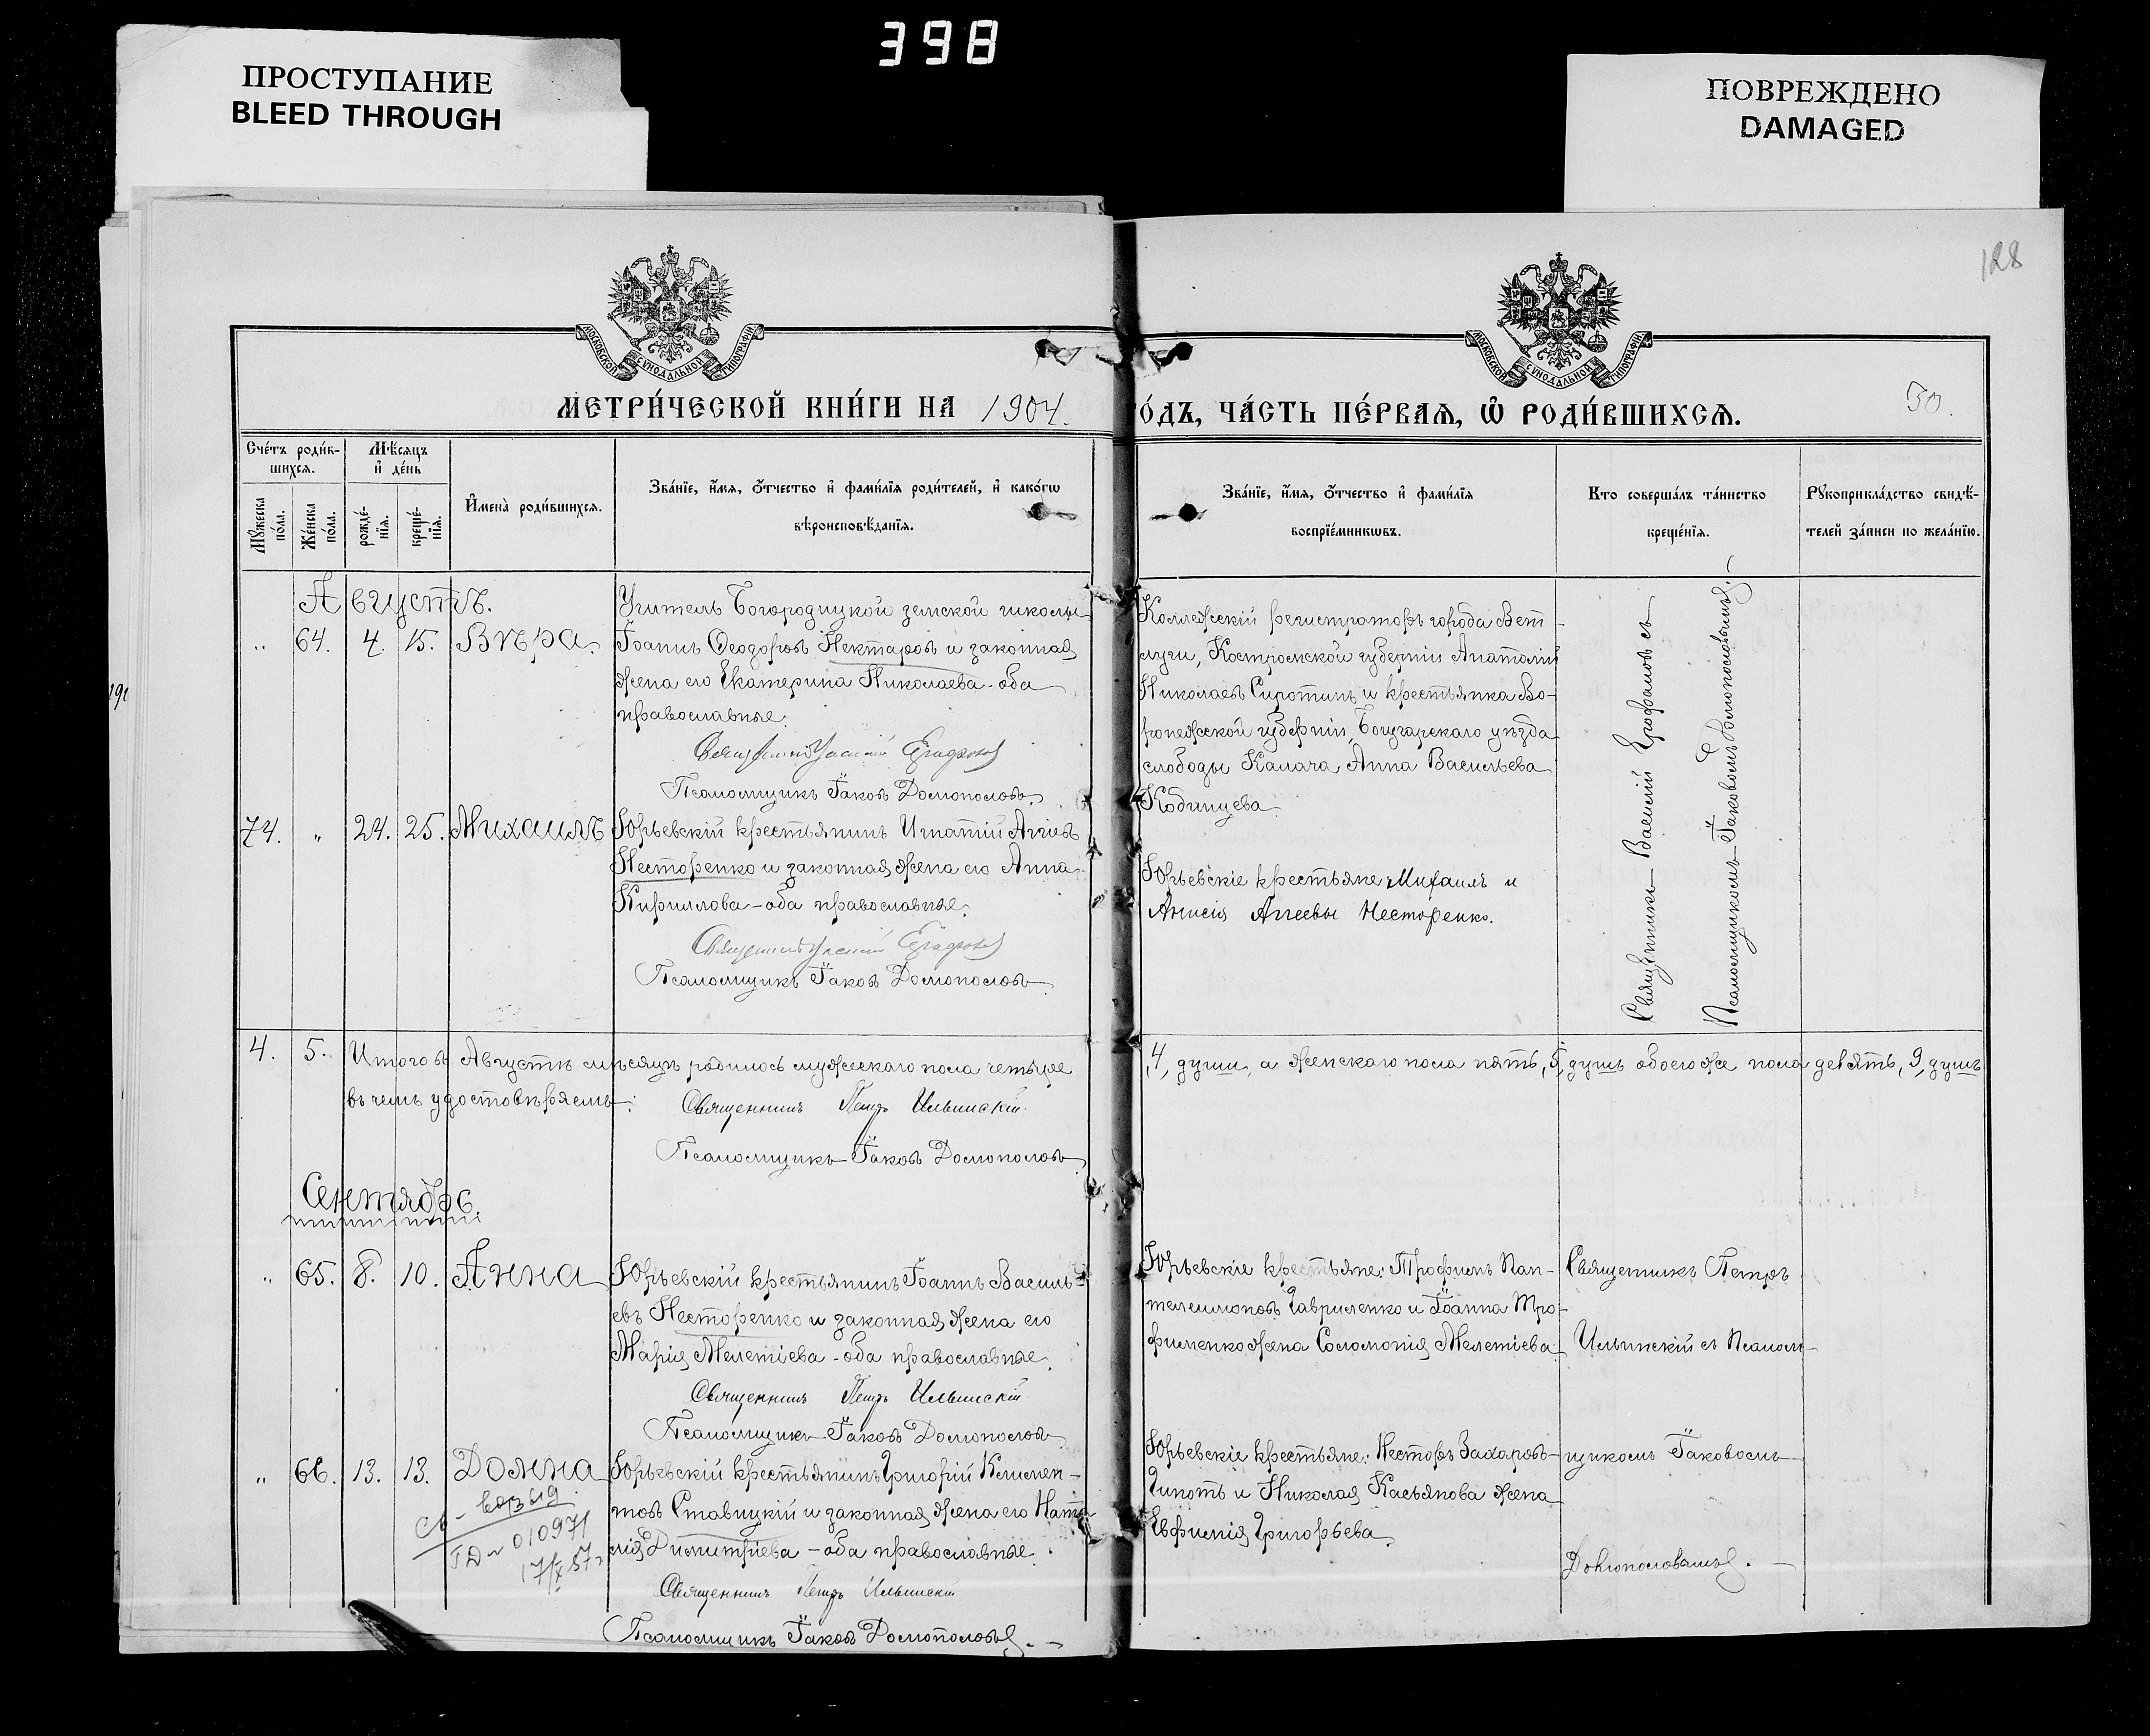 398
ПРОСТУПАНИЕ
BLEED THROUGH
ПОВРЕЖДЕНО
DAMAGED
128
МОСКОВСКОЙ СУНОДАЛЬНОЙ ТИПОГРАФІИ
МОСКОВСКОЙ СУНОДАЛЬНОЙ ТИПОГРАФІИ
МЕТРИ́ЧЕСКОЙ КНИ́ГИ НА 1904.
О́ДЪ, ЧА́СТЬ ПЕ́РВАѦ, Ѡ҆ РОДИ́ВШИХСѦ.
50.
Сче́тъ роди́в-
шихсѧ.
Мѣ́сѧцъ
и҆ де́нь
Мꙋ́жеска
по́ла.
Же́нска
по́ла.
рожде́-
нїѧ.
креще́-
нїѧ.
И҆мена̀ роди́вшихсѧ.
Зва́нїе, и҆́мѧ, ѻ҆́тчество и҆ фами́лїѧ роди́телей, и҆ како́гѡ
вѣроисповѣ́данїѧ.
Зва́нїе, и҆́мѧ, ѻ҆́тчество и҆ фами́лїѧ
воспрїе́мникѡвъ.
Кто соверша́лъ та́инство
креще́нїѧ.
Рꙋкоприкла́дство свидѣ́-
телей за́писи по жела́нїю.
Августъ.
„ 64. 4. 15. Вѣра.
Учитель Богородицкой земской школы
Іоаннъ Ѳеодоровъ Нектаровъ и законная
жена его Екатерина Николаева - оба
православные.
Священникъ Василій Ерофаловъ
Псаломщикъ Іаковъ Домополовъ.
Коллежскій регистраторъ города Вет-
луги, Костромской губерніи Анатолій
Николаевъ Сиротинъ и крестьянка Во-
ронежской губерніи, Богучарскаго уѣзда
слободы Калача Анна Васильева
Кобинцева.
Священникъ Василій Ерофаловъ съ
Псаломщикомъ Іаковомъ Домополовымъ.
74. „ 24. 25. Михаилъ
Юрьевскій крестьянинъ Игнатій Аггіевъ
Несторенко и законная жена его Анна
Кириллова - оба православные.
Священникъ Василій Ерофаловъ
Псаломщикъ Іаковъ Домополовъ.
Юрьевскіе крестьяне Михаилъ и
Анисія Аггеевы Несторенко.
4. 5. Итого въ Августѣ мѣсяцѣ родилось мужескаго пола четыре
,4, души, а женскаго пола пять, 5, душъ обоего же пола девять, 9, душъ
въ чемъ удостовѣряемъ:
Священникъ Петръ Ильинскій
Псаломщикъ Іаковъ Домополовъ
Сентябрь.
„ 65. 8. 10. Анна
Юрьевскій крестьянинъ Іоаннъ Василь-
евъ Несторенко и законная жена его
Марія Мелетіева - оба православные.
Священникъ Петръ Ильинскій
Псаломщикъ Іаковъ Домополовъ
Юрьевскіе крестьяне: Трофимъ Пан-
телеимоновъ Гавриленко и Іоанна Тро-
фименко жена Соломонія Мелетіева.
Священникъ Петръ
Ильинскій съ Псалом-
„ 66. 13. 13. Домна
010971
Юрьевскій крестьянинъ Григорій Климен-
товъ Ставицкій и законная жена его Ната-
лія Димитріева - оба православные.
Священникъ Петръ Ильинскій
Псаломщикъ Іаковъ Домополовъ. -
Юрьевскіе крестьяне: Несторъ Захаровъ
и Николая Касьянова жена
Евфимія Григорьева.
щикомъ Іаковомъ
Домополовымъ. -